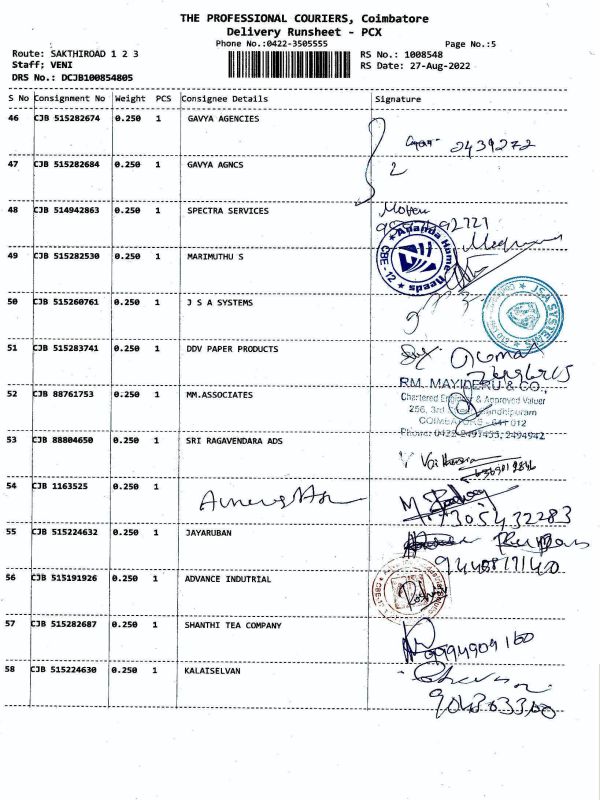 THE PROFESSIONAL COURIERS, Coimbatore
Delivery Runsheet - PCX
Phone No.:0422-3505555 Page No.:5
Route: SAKTHIROAD 1 2 3 RS No.: 1008548
Staff: VENI RS Date: 27-Aug-2022
DRS No.: DCJB100854805
S No Consignment No Weight PCS Consignee Details Signature
46 CJB 515282674 0.250 1 GAVYA AGENCIES
2439272
47 CJB 515282684 0.250 1 GAVYA AGNCS
2
48 CJB 514942863 0.250 1 SPECTRA SERVICES
Ananda Home Needs
CBE - 12
49 CJB 515282530 0.250 1 MARIMUTHU S
50 CJB 515260761 0.250 1 J S A SYSTEMS
JSA SYSTEMS
51 CJB 515283741 0.250 1 DDV PAPER PRODUCTS
52 CJB 88761753 0.250 1 MM.ASSOCIATES
& CO.,
Chartered Engineer & Approved Valuer
256, 3rd
COIMBATORE - 641 012
Phone: 0422-2491453, 2494942
53 CJB 88804650 0.250 1 SRI RAGAVENDARA ADS
54 CJB 1163525 0.250 1
7305432283
55 CJB 515224632 0.250 1 JAYARUBAN
56 CJB 515191926 0.250 1 ADVANCE INDUTRIAL
57 CJB 515282687 0.250 1 SHANTHI TEA COMPANY
9994909160
58 CJB 515224630 0.250 1 KALAISELVAN